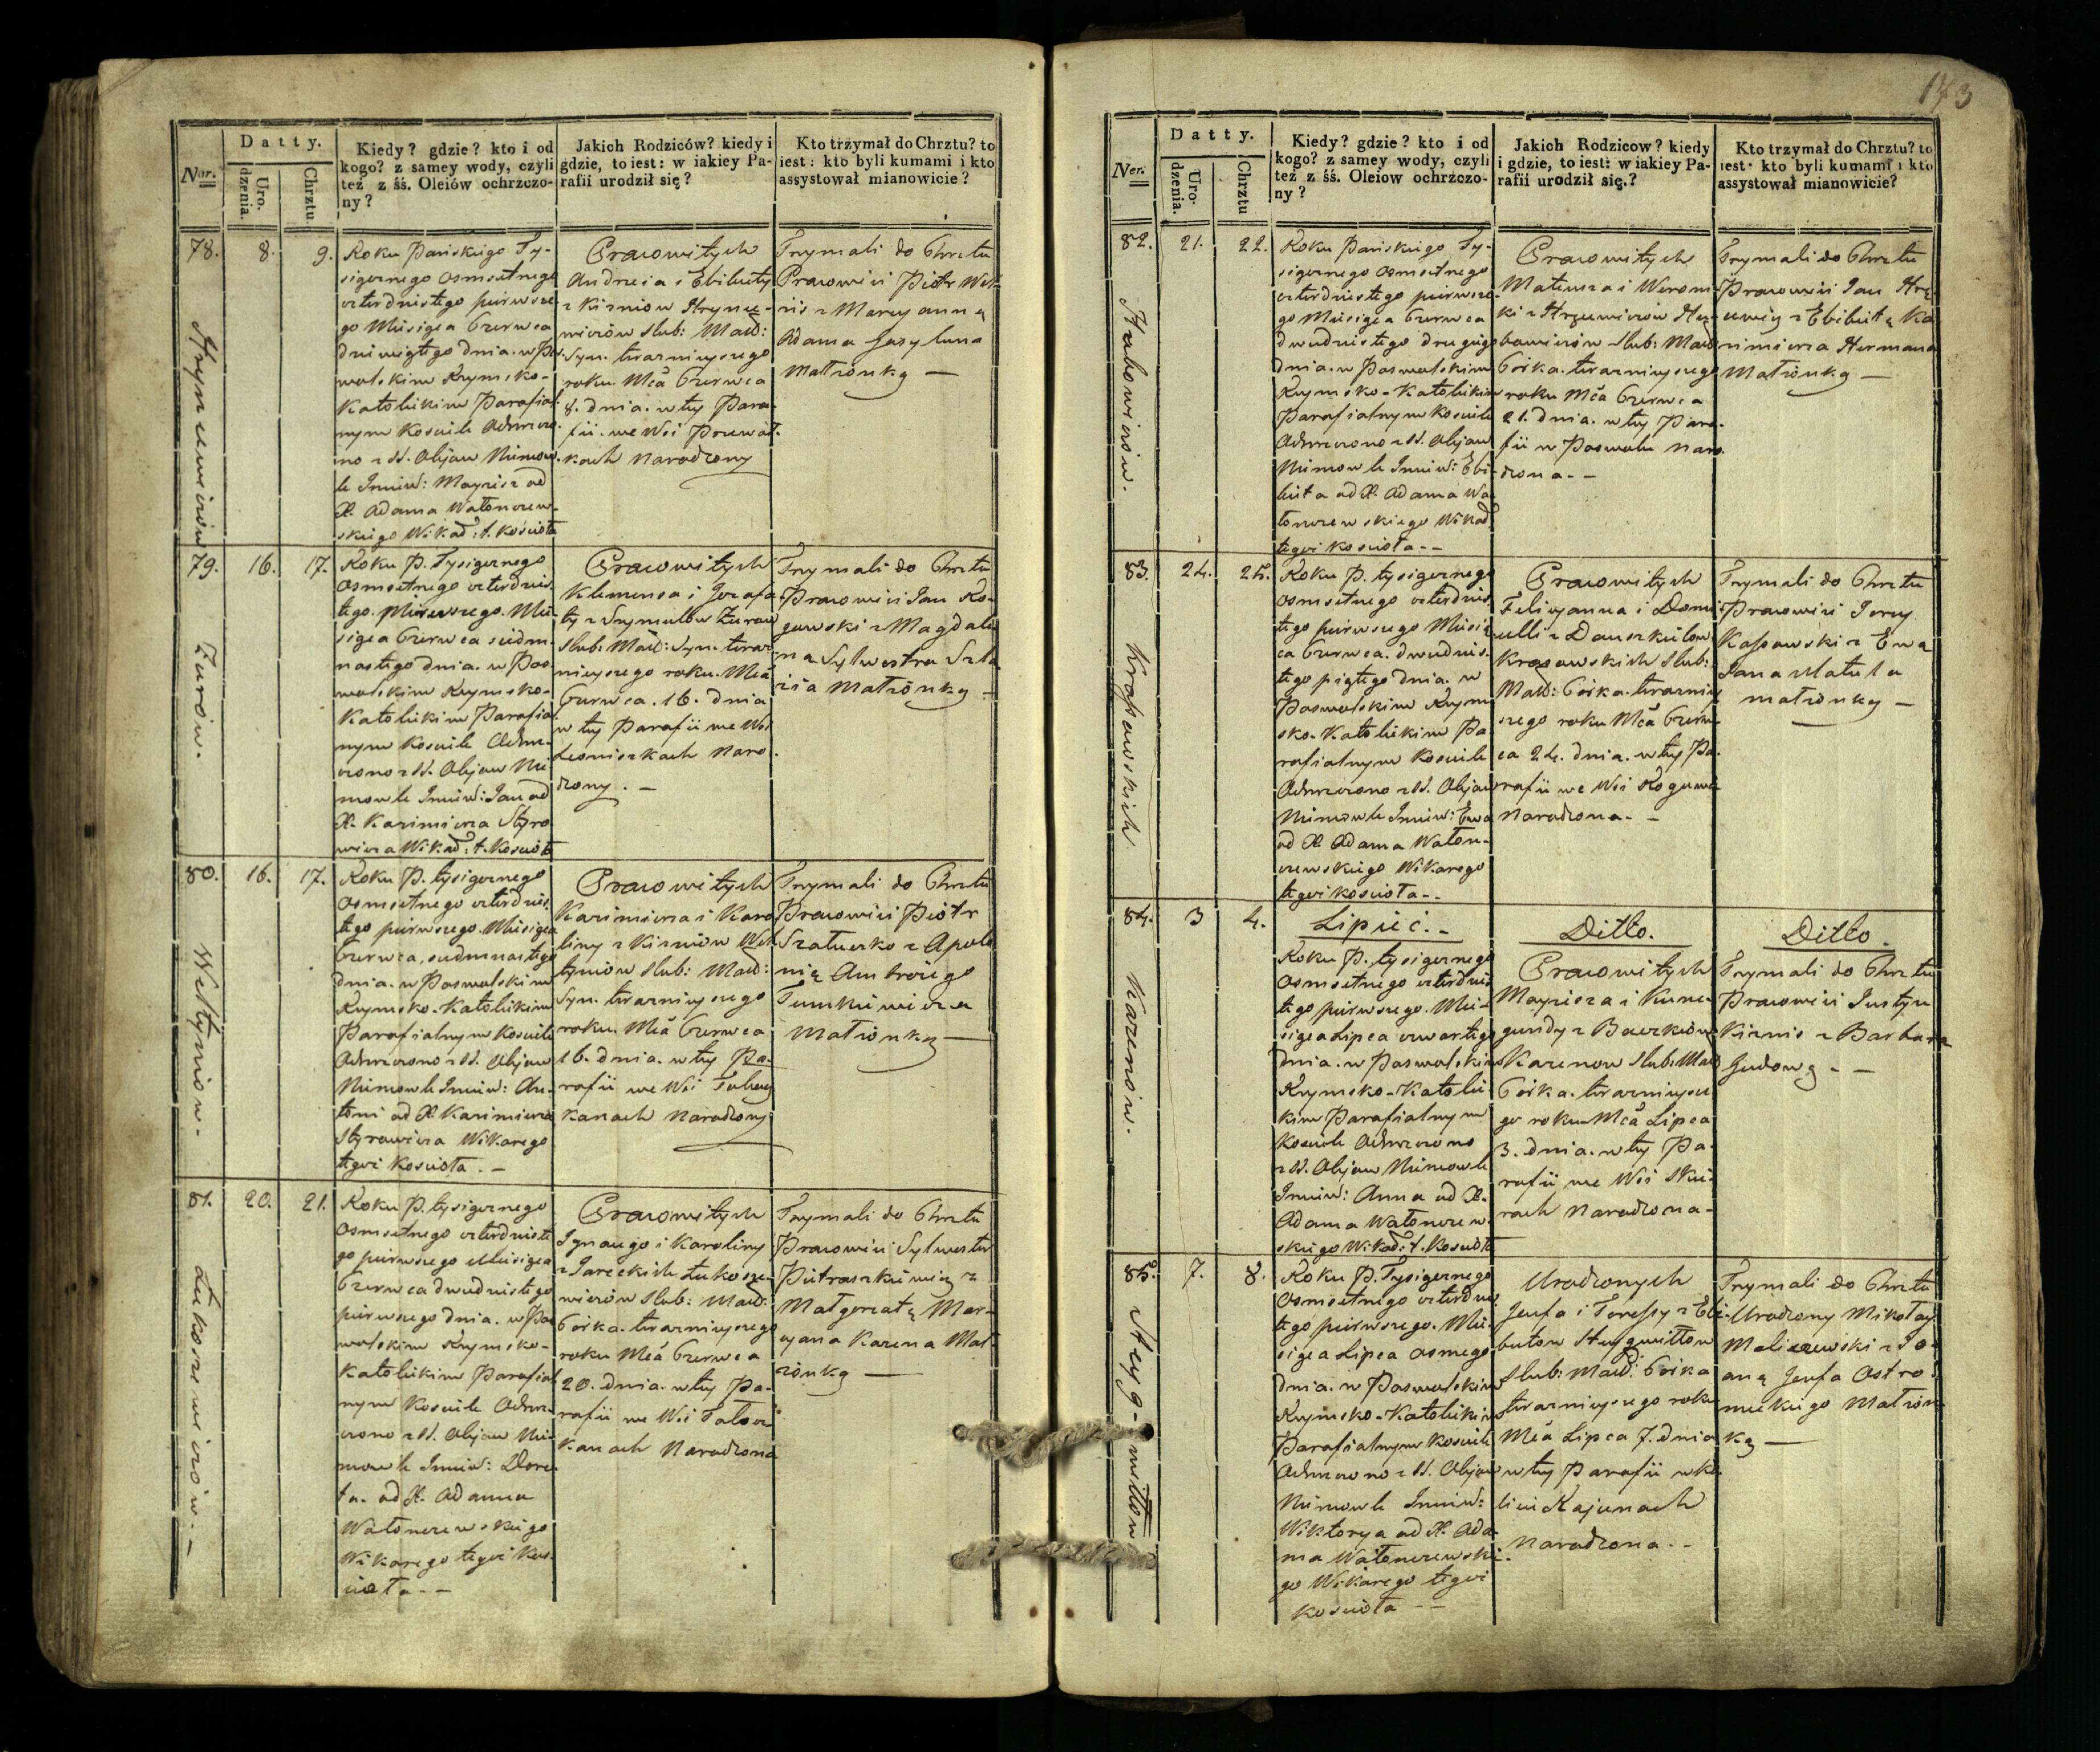 Ner.
Datty.
Uro-
dzenia.
Chrztu.
Kiedy? gdzie? kto i od
kogo? z samey wody, czyli
też z śś. Oleiów ochrzczo-
ny?
Jakich Rodziców? kiedy i
gdzie, to iest: w iakiey Pa-
rafii urodził się?
Kto trzymał do Chrztu? to
iest: kto byli kumami i kto
assystował mianowicie?
78.
8.
9.
Roku Pańskiego Ty-
siącznego Osmsetnego
czterdziestego pierwsze-
go Miesiąca Czerwca
dziewiątego dnia. w Po-
wolskim Rzymsko-
Katolickim Parafial-
nym Kosciele Ochrzczo-
no z SS. Olejow Niemow-
le Imieniem: Maycisz od
X. Adama Watonczew-
skiego Wikar: t. Kościoła
Pracowitych
Andrzeia i Elżbiety
z Kirniow Hryncew-
wiczów Slub: Małż:
Syn. teraznieyszego
roku Mca Czerwca
8. dnia. w tey Para-
fii. we Wsi
kach Narodzony
Trzymali do Chrztu
Pracowici Piotr
z Maryanną
Adama
Matżonką —
79.
Żurów.
16.
17.
Roku P. Tysiącznego
Osmsetnego czterdzies-
tego. Pierwszego. Mie-
siąca Czerwca siedm-
nastego dnia. w Pos-
wolskim Rzymsko-
Katolickim Parafial-
nym Kosciele Ochrz-
czono z SS. Olejow Nie-
mowle Imieniem: Jan od
X. Kazimierza Styro-
wicza Wikar: t. Kościoła
Pracowitych
Klemensa i Jozefa-
ty z Szymulów Żurow
Slub: Małż: Syn. teraz-
nieyszego roku. Mca
Czerwca. 16. dnia
w tey Parafii we Wsi
Leoniszkach Naro-
dzony. —
Trzymali do Chrztu
Pracowici Jan Ro-
gowski z Magdale-
ną Sylwestra
Matżonką —
80.
Weltyniow.
16.
17.
Roku P. tysiącznego
Osmsetnego czterdzies-
tego pierwszego. Miesiąca
Czerwca, siedmnastego
dnia. w Poswolskim
Rzymsko-Katolickim
Parafialnym Kosciele
Ochrzczono z SS. Olejow
Niemowle Imieniem: An-
toni od X. Kazimierza
Styrowicza Wikarego
tegoż Kosciola. —
Pracowitych
Kazimierza i Karo-
liny z Kirniow Wel-
tyniow Slub: Małż:
Syn. teraznieyszego
roku. Mca Czerwca
16. dnia. w tey Pa-
rafii we Wsi
kanach Narodzony
Trzymali do Chrztu
Pracowici Piotr
Szatuerko z Apolo-
nią Ambrożego
Tumkiewicza
Matżonką —
81.
Łukoszewiczow. —
20.
21.
Roku P. tysiącznego
Osmsetnego czterdzieste-
go pierwszego Miesiąca
Czerwca dwudziestego
pierwszego dnia. w Pos-
wolskim Rzymsko-
Katolickim Parafial-
nym Kosciele Ochrz-
czono z SS. Olejow Nie-
mowle Imieniem: Doro-
ta. od X. Adama
Watonczewskiego
Wikarego tegoż Kos-
ciola. —
Pracowitych
Ignacego i Karoliny
z Jareckich Łukosze-
wiczów Slub: Małż:
Córka. teraznieyszego
roku Mca Czerwca
20. dnia. w tey Pa-
rafii we Wsi
kanach Narodzona
Trzymali do Chrztu
Pracowici Sylwester
Pietraszkiewicz z
Małgorzatą Mar-
cyana Karena Mał-
żonką —
173
Ner.
Datty.
Uro-
dzenia.
Chrztu
Kiedy? gdzie? kto i od
kogo? z samey wody, czyli
też z śś. Oleiow ochrzczo-
ny?
Jakich Rodzicow? kiedy
i gdzie, to iest: w iakiey Pa-
rafii urodził się?
Kto trzymał do Chrztu? to
iest: kto byli kumami i kto
assystował mianowicie?
82.
21.
22.
Roku Pańskiego Ty-
siącznego Osmsetnego
czterdziestego pierwsze-
go Miesiąca Czerwca
dwudziestego drugiego
dnia. w Poswolskim
Rzymsko-Katolickim
Parafialnym Kosciele
Ochrzczono z SS. Olejow
Niemowle Imieniem: Elż-
bieta od X. Adama Wa-
tonczewskiego Wikar:
tegoż kosciola. —
Pracowitych
Mateusza i Weroni-
ki z
Slub: Małż:
Córka. teraznieyszego
roku Mca Czerwca
21. dnia. w tey Para-
fii w Poswolu Naro-
dzona. —
Trzymali do Chrztu
Pracowici Jan
z Elżbietą Ka-
zimierza Hermana
Matżonką —
83.
Krassowskich
24.
25.
Roku P. tysiącznego
Osmsetnego czterdzies-
tego pierwszego Miesią-
ca Czerwca. dwudzies-
tego piątego dnia. w
Poswolskim Rzym-
sko-Katolickim Pa-
rafialnym Kosciele
Ochrzczono z SS. Olejow
Niemowle Imieniem: Ewa
od X. Adama Waton-
czewskiego Wikarego
tegoż kosciola. —
Pracowitych
Felicyanna i Domi-
celli z
Krasowskich Slub:
Małż: Córka. teraznie-
szego roku Mca Czerw-
ca 24. dnia. w tey Pa-
rafii we Wsi
Narodzona. —
Trzymali do Chrztu
Pracowici Jerzy
Kassowski z Ewą
Jana
matżonką —
84.
Karenow.
3
4.
Lipiec. —
Roku P. tysiącznego
Osmsetnego czterdzies-
tego pierwszego. Mie-
siąca Lipca czwartego
dnia. w Poswolskim
Rzymsko-Katolic-
kim Parafialnym
Kosciele Ochrzczono
z SS. Olejow Niemowle
Imieniem: Anna od X.
Adama Watonczew-
skiego Wikar: t. Kosciola
Ditto.
Pracowitych
Maycisza i Kune-
gundy z
Karenow Slub: Małż
Córka. teraznieysze-
go roku Mca Lipca
3. dnia. w tey Pa-
rafii we Wsi
rach Narodzona —
Ditto.
Trzymali do Chrztu
Pracowici Justyn
Kirnis z Barbarą
Gudową — —
85.
7.
8.
Roku P. Tysiącznego
Osmsetnego czterdzies-
tego pierwszego. Mie-
siąca Lipca osmego
dnia. w Poswolskim
Rzymsko-Katolickim
Parafialnym Kosciele
Ochrzczono z SS. Olejow
Niemowle Imieniem:
Wiktorya od X. Ada-
ma Watonczewskie-
go Wikarego tegoż
kosciola — —
Urodzonych
Jozefa i Teressy z
Slub: Małż: Córka
teraznieyszego roku
Mca Lipca 7. dnia
w tey Parafii
Rajunach
Narodzona. —
Trzymali do Chrztu
Urodzony Mikołay
Maliszewski z Jo-
anną Jozefa Ostro-
Matżon-
ką —